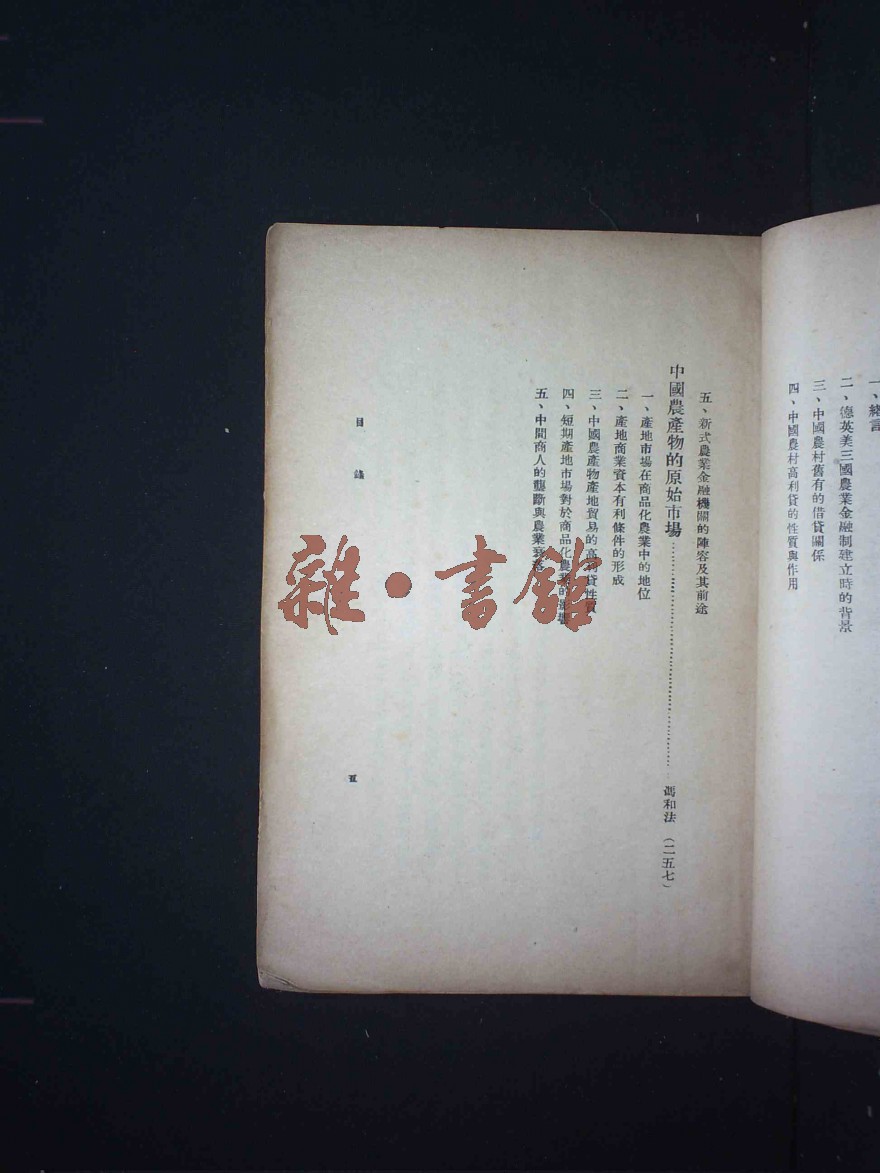 一、緒言
二、德英美三國農業金融制建立時的背景
三、中國農村舊有的借貸關係
四、中國農村高利貸的性質與作用
五、新式農業金融機關的陣容及其前途
中國農產物的原始市場…………馮和法(二五七)
一、產地市場在商品化農業中的地位
二、產地商業資本有利條件的形成
三、中國農產物產地貿易的高利貸性質
四、短期產地市場對於商品化農業的影響
五、中間商人的壟斷與農業衰落
目錄
五
雜·書館